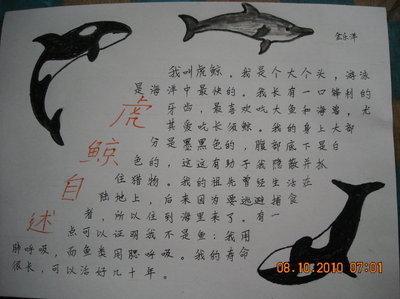 金乐洋
虎鲸自述
我叫虎鲸，我是个大个头，游泳
是海洋中最快的。我长有一口锋利的
牙齿，最喜欢吃大鱼和海兽，尤
其爱吃长须鲸。我的身上大部
分是墨黑色的，腹部底下是白
色的，这这有助于我隐蔽并抓
住猎物。我的祖先曾经生活在
陆地上，后来因为要逃避捕食
者，所以住到海里来了。有一
点可以证明我不是鱼：我用
肺呼吸，而鱼类用腮呼吸。我的寿命
很长，可以活好几十年。
08.10.2010 07:01